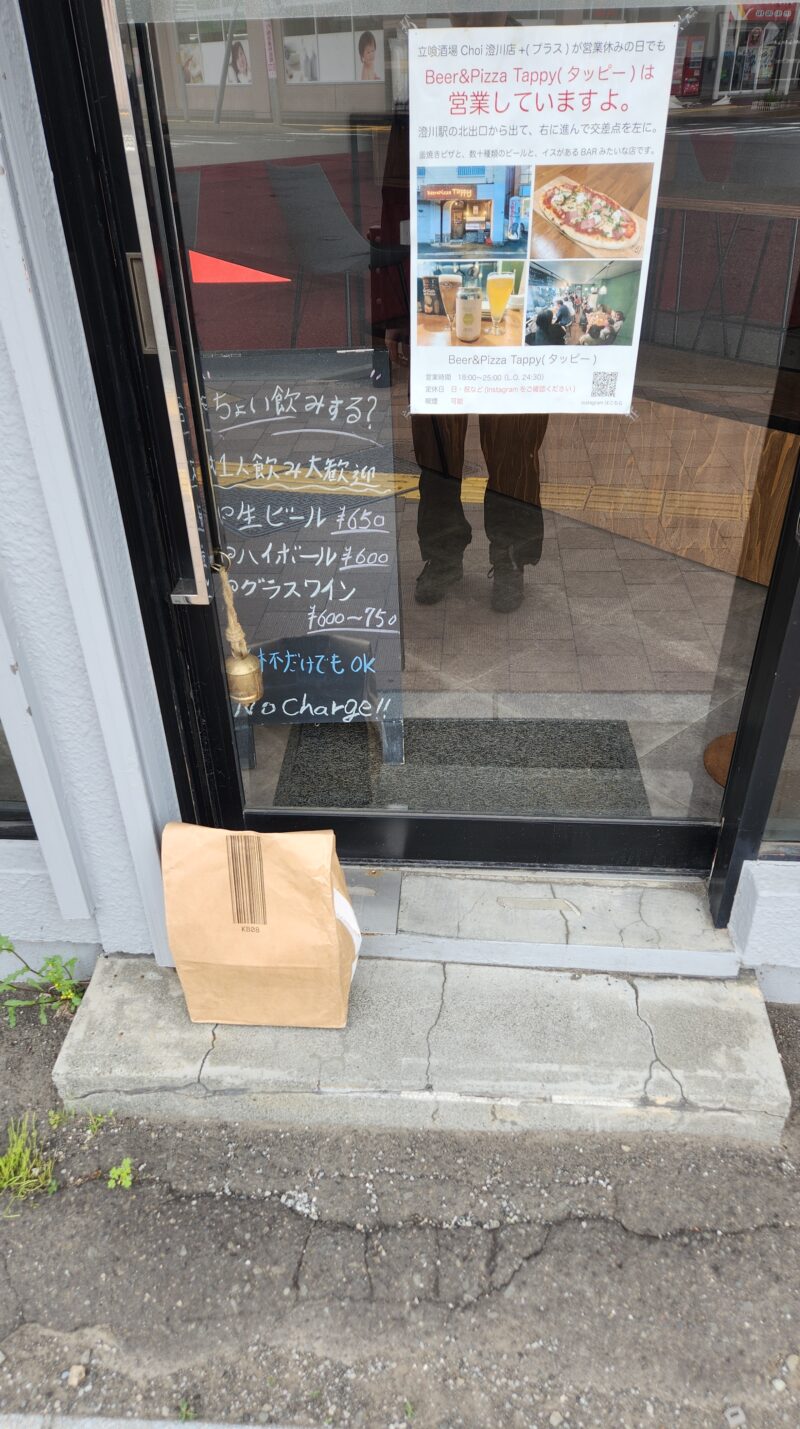 立喰酒場 Choi 澄川店 +(プラス)が営業休みの日でも
Beer&Pizza Tappy(タッピー)は
営業していますよ。
澄川駅の北出口から出て、右に進んで交差点を左に。
釜焼きピザと、数十種類のビールと、イスがあるBARみたいな店です。
Beer&Pizza Tappy
Beer&Pizza Tappy(タッピー)
営業時間 18:00～25:00 (L.O. 24:30)
定休日 日・祝など(Instagramをご確認ください)
喫煙 可能
Instagramはこちら
ちょい飲みする?
1人飲み大歓迎
生ビール ¥650
ハイボール ¥600
グラスワイン
¥600～750
杯だけでもOK
No Charge!!
KB08